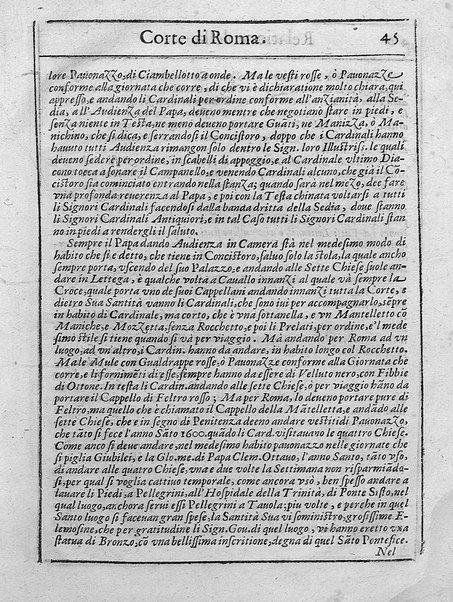 Corte di Roma. 45
lore Pauonazzo, di Ciambellotto a onde. Ma le vesti rosse, ò Pauonazze
conforme alla giornata che corre, di che vi è dichiaratione molto chiara, qui
appresso, e andando li Cardinali per ordine conforme all'anzianità, alla Se-
dia, all'Audienza del Papa, deueno mentre che negotiano stare in piedi, e
senza niente in Testa, ne meno deueno portare Guāti, ne Manizza, ò Ma-
nichino, che si dica, e serrandosi il Concistoro, doppo che i Cardinali hanno
hauuto tutti Audienza rimangon solo dentro le Sign. loro Illustrisi. le quali
deueno sedere per ordine, in scabelli di appoggio, e al Cardinale vltimo Dia-
cono tocca a sonare il Campanello, e venendo Cardinale alcuno, che già il Co-
cistoro sia cominciato entrando nella stanza, quando sarà nel mezo, dee fare
vna profonda reuerenza al Papa, e poi con la Testa chinata voltarsi a tutti
li Signori Cardinali facendosi dalla banda dritta della Sedia, doue stanno
li Signori Cardinali Antiquiori, e in tal Caso tutti li Signori Cardinali stan
no in piedi a rendergli il saluto.
Sempre il Papa dando Audienza in Camera stà nel medesimo modo di
habito che si è detto, che tiene in Concistoro, saluo solo la stola, la quale ancho
sempre porta, vscendo del suo Palazzo, e andando alle Sette Chiese suole an-
dare in Lettega, è qualche volta a Cauallo innanzi al quale và sempre la
Croce, quale porta vno de suoi Cappellani andando innanzi tutta la Corte, e
dietro Sua Santità vanno li Cardinali, che sono iui per accompagnarlo, sēpre
in habito di Cardinale, ma corto, che è vna sottanella, e vn Mantelletto cō
Maniche, e Mozzetta, senza Rocchetto, e poi li Prelati, per ordine, e'l mede-
simo stile si tiene quando si và per viaggio. Mà andando per Roma ad vn
luogo, ad vn'altro, i Cardin. hanno da andare, in habito longo col Rocchetto.
Ma le Mule con Gualdrappe rosse, ò Pauonaze conforme alla Giornata che
corre, e li fornimēti di esse, sempre hanno da essere di Velluto nero, con Fibbie
di Ottone. In testa li Cardin. andando alle sette Chiese, ò per viaggio hāno da
portare il Cappello di Feltro rosso; Ma per Roma, lo deueno portare pure di
Feltro, ma quello che è chiamato il Cappello della Mātelletta, e andādo alle
sette Chiese, che è in segno di Penitenza deeno andare vestiti di Pauonazzo,
che tāto si fece l'anno Sāto 1600. quādo li Card. visitauano le quattro Chiese.
Come anco si deue andare, nel medesimo habito pauonazzo nelle giornate che
si piglia Giubilei, e la Glo. me. di Papa Clem. Ottauo, l'anno Santo, tāto vsò,
di andare alle quattro Chiese, vna e due volte la Settimana non risparmiādo-
si, per qual si voglia cattiuo temporale, come ancora vsò, ben spesso andare a
lauare li Piedi, a Pellegrini, all'Hospidale della Trinità, di Ponte Sisto, nel
qual luogo, anchora seruì essi Pellegrini a Tauola; piu volte, e perche in quel
Santo luogo si faceuan gran spese, la Santità Sua vi somministrò, grosissime E-
lemosine, che per gratitudine li Sign. Gou. di quel luogo, vi hanno eretto vna
statua di Bronzo, cō vna bellissima inscritione, degna di quel Sāto Pontefice.
Nel